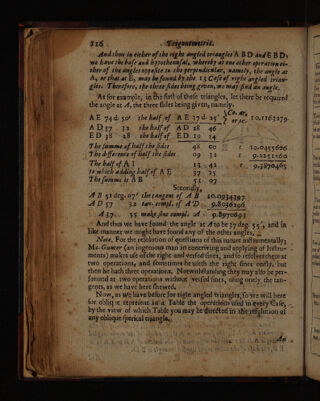 116 Trigonometrie.
And thus in either of the right angled triangles A B D and E B D;
we have the base and hypothenusal, whereby at one other operation ei-
ther of the angles opposite to the perpendicular, namely, the angle at
A, or that at E, may be found by the 15 Case of right angled trian-
gles. Therefore, the three sides being given, we may find an angle.
As for example, in the first of these triangles, let there be required
the angle at A, the three sides being given, namely.
A E 74 d. 50' the half of A E 37 d. 25' Co. ar. 10.1163279
A D 57 32 the half of A D 28 46
E D 38 28 the half of E D 19 14
The summe of half the sides 48 00 t 10.0455626
The difference of half the sides 09 32 t 9.2251160
The half of A I 13 42 t 9.3870465
to which adding half of A E 37 25
The summe is A B 51 07
Secondly,
A B 51 deg. 07' the tangent of A B 10.0934397
A D 57 32 tan. compl. of A D 9.8036296
A 37 55 make sine compl. A 9.8970693
And thus we have found the angle at A to be 37 deg. 55', and in
like manner we might have found any of the other angles.
Note, For the resolution of questions of this nature instrumentally;
Mr. Gunter (an ingenious man in conceiving and applying of Instru-
ments) makes use of the right and versed sines, and so resolves them at
two operations, and sometimes he useth the right sines onely, but
then he hath three operations. Notwithstanding they may also be per-
formed at two operations without versed sines, using onely the tan-
gents, as we have here shewed.
Now, as we have before for right angled triangles, so we will here
for oblique represent as a Table the operations used in every Case,
by the view of which Table you may be directed in the resolution of
any oblique spherical triangle.
An